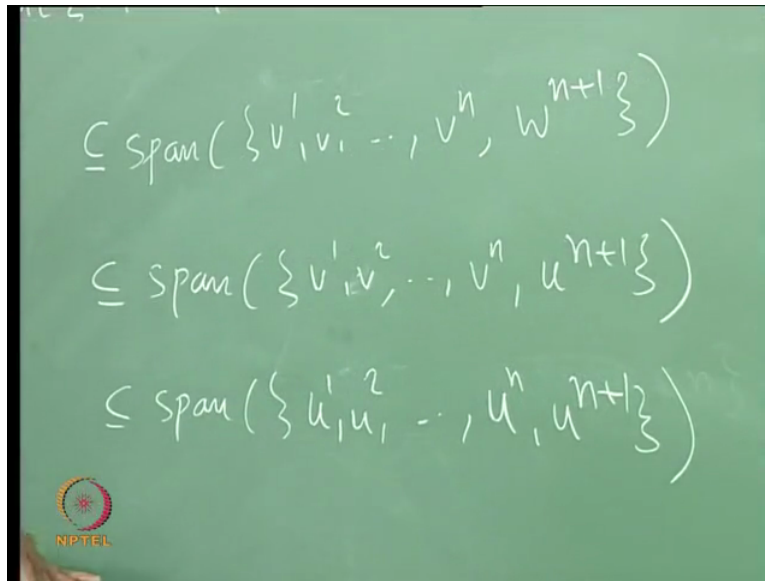 ⊆ span({v¹, v², --, vⁿ, wⁿ⁺¹})
⊆ span({v¹, v², --, vⁿ, uⁿ⁺¹})
⊆ span({u¹, u², --, uⁿ, uⁿ⁺¹})
NPTEL